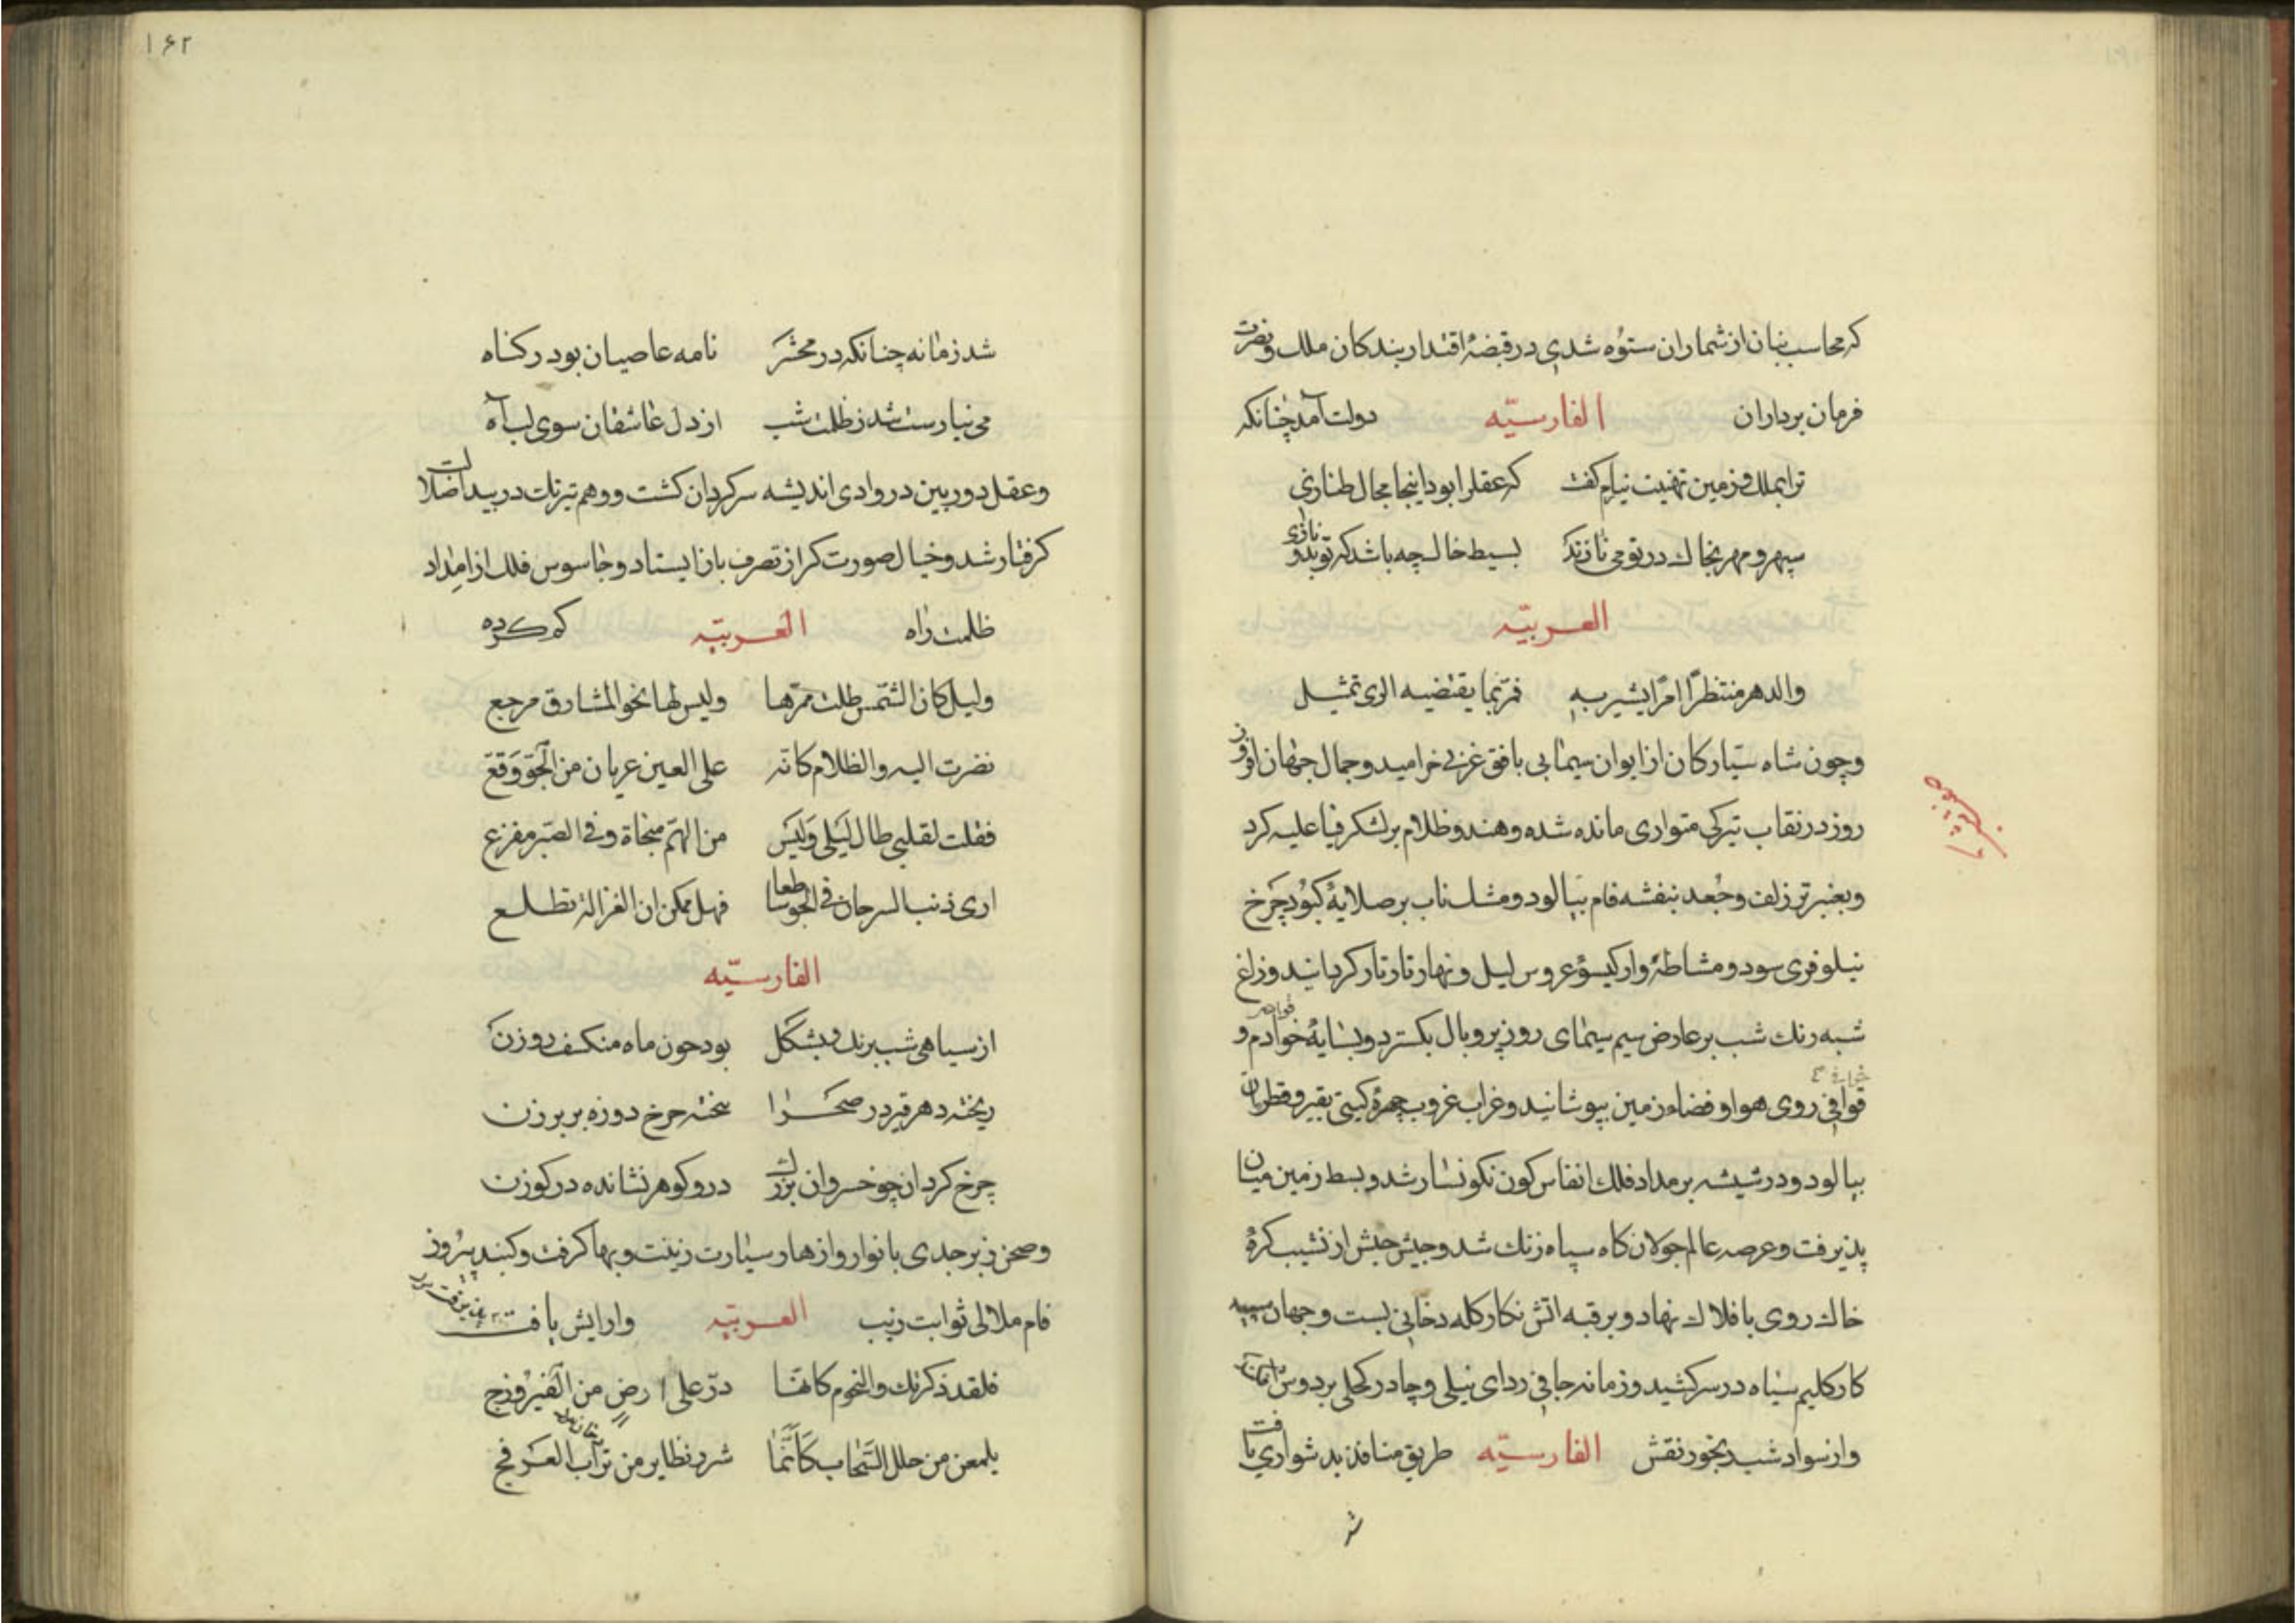 که محاسب بنان از شماران ستوه شدی در قبضهٔ اقتدار بندکان ملک و نصرت
فرمان برداران الفارسیّه دولت آمد چنانکه
ترا بملک زمین تهنیت نیارم کفت که عقل را بود اینجا مجال طنازی
سپهر و مهر بخاک در تو می نازند بسیط خاک چه باشد که تو بدو نازی
العربیّه
والدهر منتظرًا امرًا یشیر به فمر بما یقتضیه الری تمثیل
و چون شاه سیّارکان از ایوان سیمابی بافق غربی خرامید و جمال جهان افروز
روز در نقاب تیرکی متواری مانده شده و هندو ظلام بر لشکر ضیا غلبه کرد
و بعنبر تر زلف و جعد بنفشه فام بیالود و مشک ناب بر صلایهٔ کبود چرخ
نیلوفری سود و مشاطهٔ وار کیسوٴ عروس لیل و نهار تار تار کردانید و زاغ
شبه رنك شب بر عارض سیم سیمای روز پر و بال بکسترد و بسایهٔ خوادم و
قوافی روی هوا و فضاء زمین بپوشانید و غراب غروب چهرهٔ کیتی بقیر و قطران
بیالود و در شیشه بر مداد فلك انفاس کون نکونسار شد و بسط زمین میان
پذیرفت و عرصه عالم جولان کاه سپاه زنك شد و جیش حبش از نشیب کرهٔ
خاك روی بافلاك نهاد و بر قبه آتش نکار کله دخانی بست و جهان سپید
کار کلیم سیاه در سر کشید و زمانه جافی ردای نیلی و چادر کحلی بر دوش
و از سواد شب بخور نقش الفارسیّه طریق منافذ بدشواری یافت
شد
۱۶۲
شد زمانه چنانکه در محشر نامه عاصیان بود در کناه
می نیارست شد ز ظلمت شب از دل عاشقان سوی لب آه
و عقل دوربین در وادی اندیشه سرکردان کشت و وهم تیزتك در بیدا ضلالت
کرفتار شد و خیال صورت کر از تصرف باز ایستاد و جاسوس فلك از امداد
ظلمت راه العربیّه کم کرده
ولیل کان الشمس ظلت ممرها ولیس لها نحو المشارق مرجع
نضرت الیه والظلام کانه علی العین غربان من الجوّ وقع
فقلت لقلبی طال لیلی ولیس من الهمّ منجاة وفی الصبر مفزع
اری ذنب السرحان فی الجوّ ساطعا فهل ممکن ان الغزالة تطلع
الفارسیّه
از سیاهی شب برنك و بشکل بود حون ماه منکسف روزن
ریخته دهر قیر در صحرا بیخته حرخ دوزه بر برزن
چرخ کردان چو خسروان بزرك در و کوهر نشانده در کرزن
و صحن زبرجدی بانوار و ازهار سیارت زینت و بها کرفت و کنبد پیروز
فام ملالی ثوابت زیب العربیّه و ارایش یافت
فلقد ذکرتك والنجوم کانها درّ علی ارض من الفیروزج
یلمعن من خلل السحاب کأنّما شرر تطایر من تراب العرفج